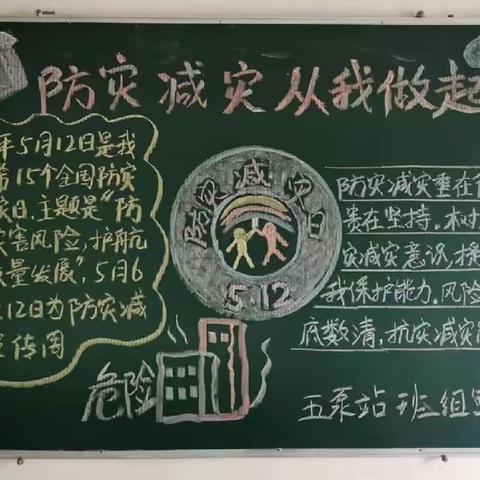 防灾减灾从我做起
年5月12日是我
第15个全国防灾
灾日,主题是"防
灾害风险,护航
质量发展",5月6
12日为防灾减
宣传周
防灾减灾日
5.12
危险
防灾减灾重在
贵在坚持。树
灾减灾意识,提
我保护能力,风险
底数清,抗灾减灾
五泵站 班组宣